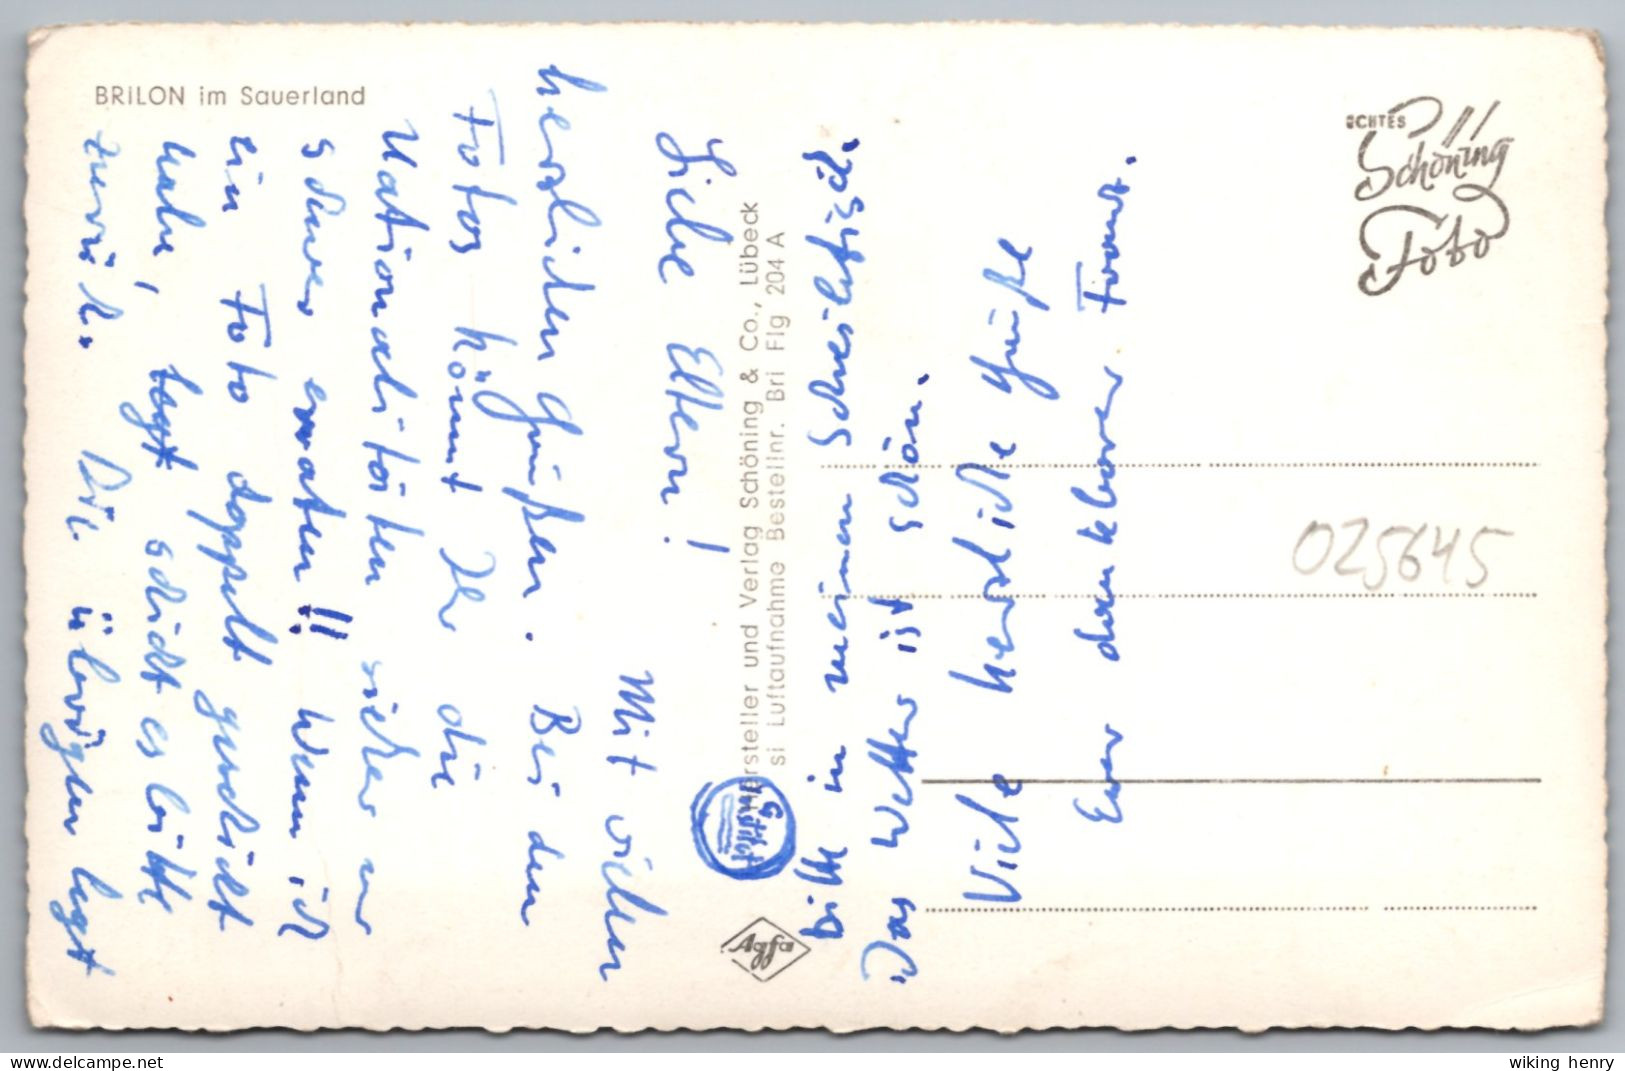 BRILON im Sauerland
Liebe Eltern!
Mit vielen
herzlichen Grüßen. Bei den
Fotos könnt Ihr die
Nationalitäten sicher nur
schwer erraten!! Wenn ich
ein Foto doppelt geschickt
habe, legt schickt es bitte
zurück. Die übrigen legt
bitte in meinem Schreibtisch.
Das Wetter ist schön.
Viele herzliche Grüße
Euer dankbarer
Hersteller und Verlag Schöning & Co., Lübeck
si Luftaufnahme Bestellnr. Bri Flg 204 A
Agfa
ECHTES
Schöning
Foto
025645
www.delcampe.net
wiking henry